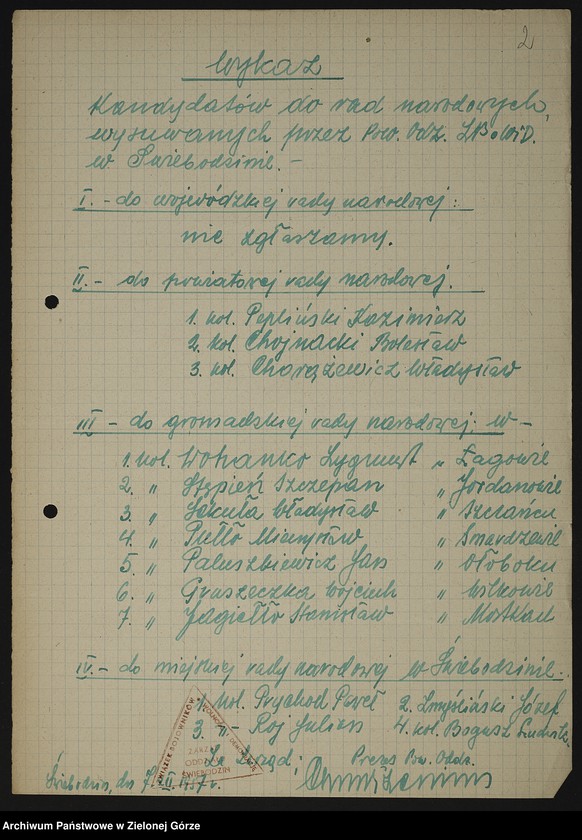 2
Wykaz
Kandydatów do rad narodowych,
wysuwanych przez Pow. Odz. ZBoWiD.
w Świebodzinie. -
I. - do wojewódzkiej rady narodowej:
nie zgłaszamy.
II. - do powiatowej rady narodowej.
1. kol. Pepliński Kazimierz
2. kol. Chojnacki Bolesław
3. kol. Charążewicz Władysław
III - do gromadzkiej rady narodowej: w -
1. kol. Wohanko Zygmunt " Łagowie
2. " Stępień Szczepan " Jordanowie
3. " Sekuła Władysław " Szczańcu
4. " Putło Mieczysław " Smardzewie
5. " Paluszkiewicz Jan " Ołoboku
6. " Gruszeczka Wojciech " Wilkowie
7. " Jagiełło Stanisław " Mostkach
IV. - do miejskiej rady narodowej w Świebodzinie.
1. kol. Prychod Paweł 2. Zmyśliński Józef
3. -"- Roj Julian 4. kol. Bogusz Ludwik.
Za Zarząd: Prezes Pow. Oddz.
ZWIĄZEK BOJOWNIKÓW O WOLNOŚĆ I DEMOKRACJĘ
ZARZĄD
ODDZIAŁ
ŚWIEBODZIN
Świebodzin, dn 1957 r.
Archiwum Państwowe w Zielonej Górze